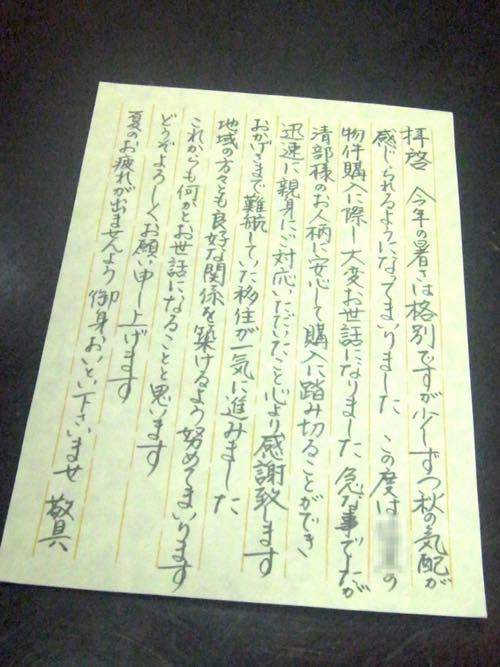 拝啓 今年の暑さは格別ですが少しずつ秋の気配が
感じられるようになってまいりました この度は の
物件購入に際し大変お世話になりました 急な事でしたが
清部様のお人柄に安心して購入に踏み切ることができ
迅速に親身にご対応いただいたこと心より感謝致します
おかげさまで難航していた移住が一気に進みました
地域の方々とも良好な関係を築けるよう努めてまいります
これからも何かとお世話になることと思います
どうぞよろしくお願い申し上げます
夏のお疲れが出ませんよう御身おいとい下さいませ 敬具